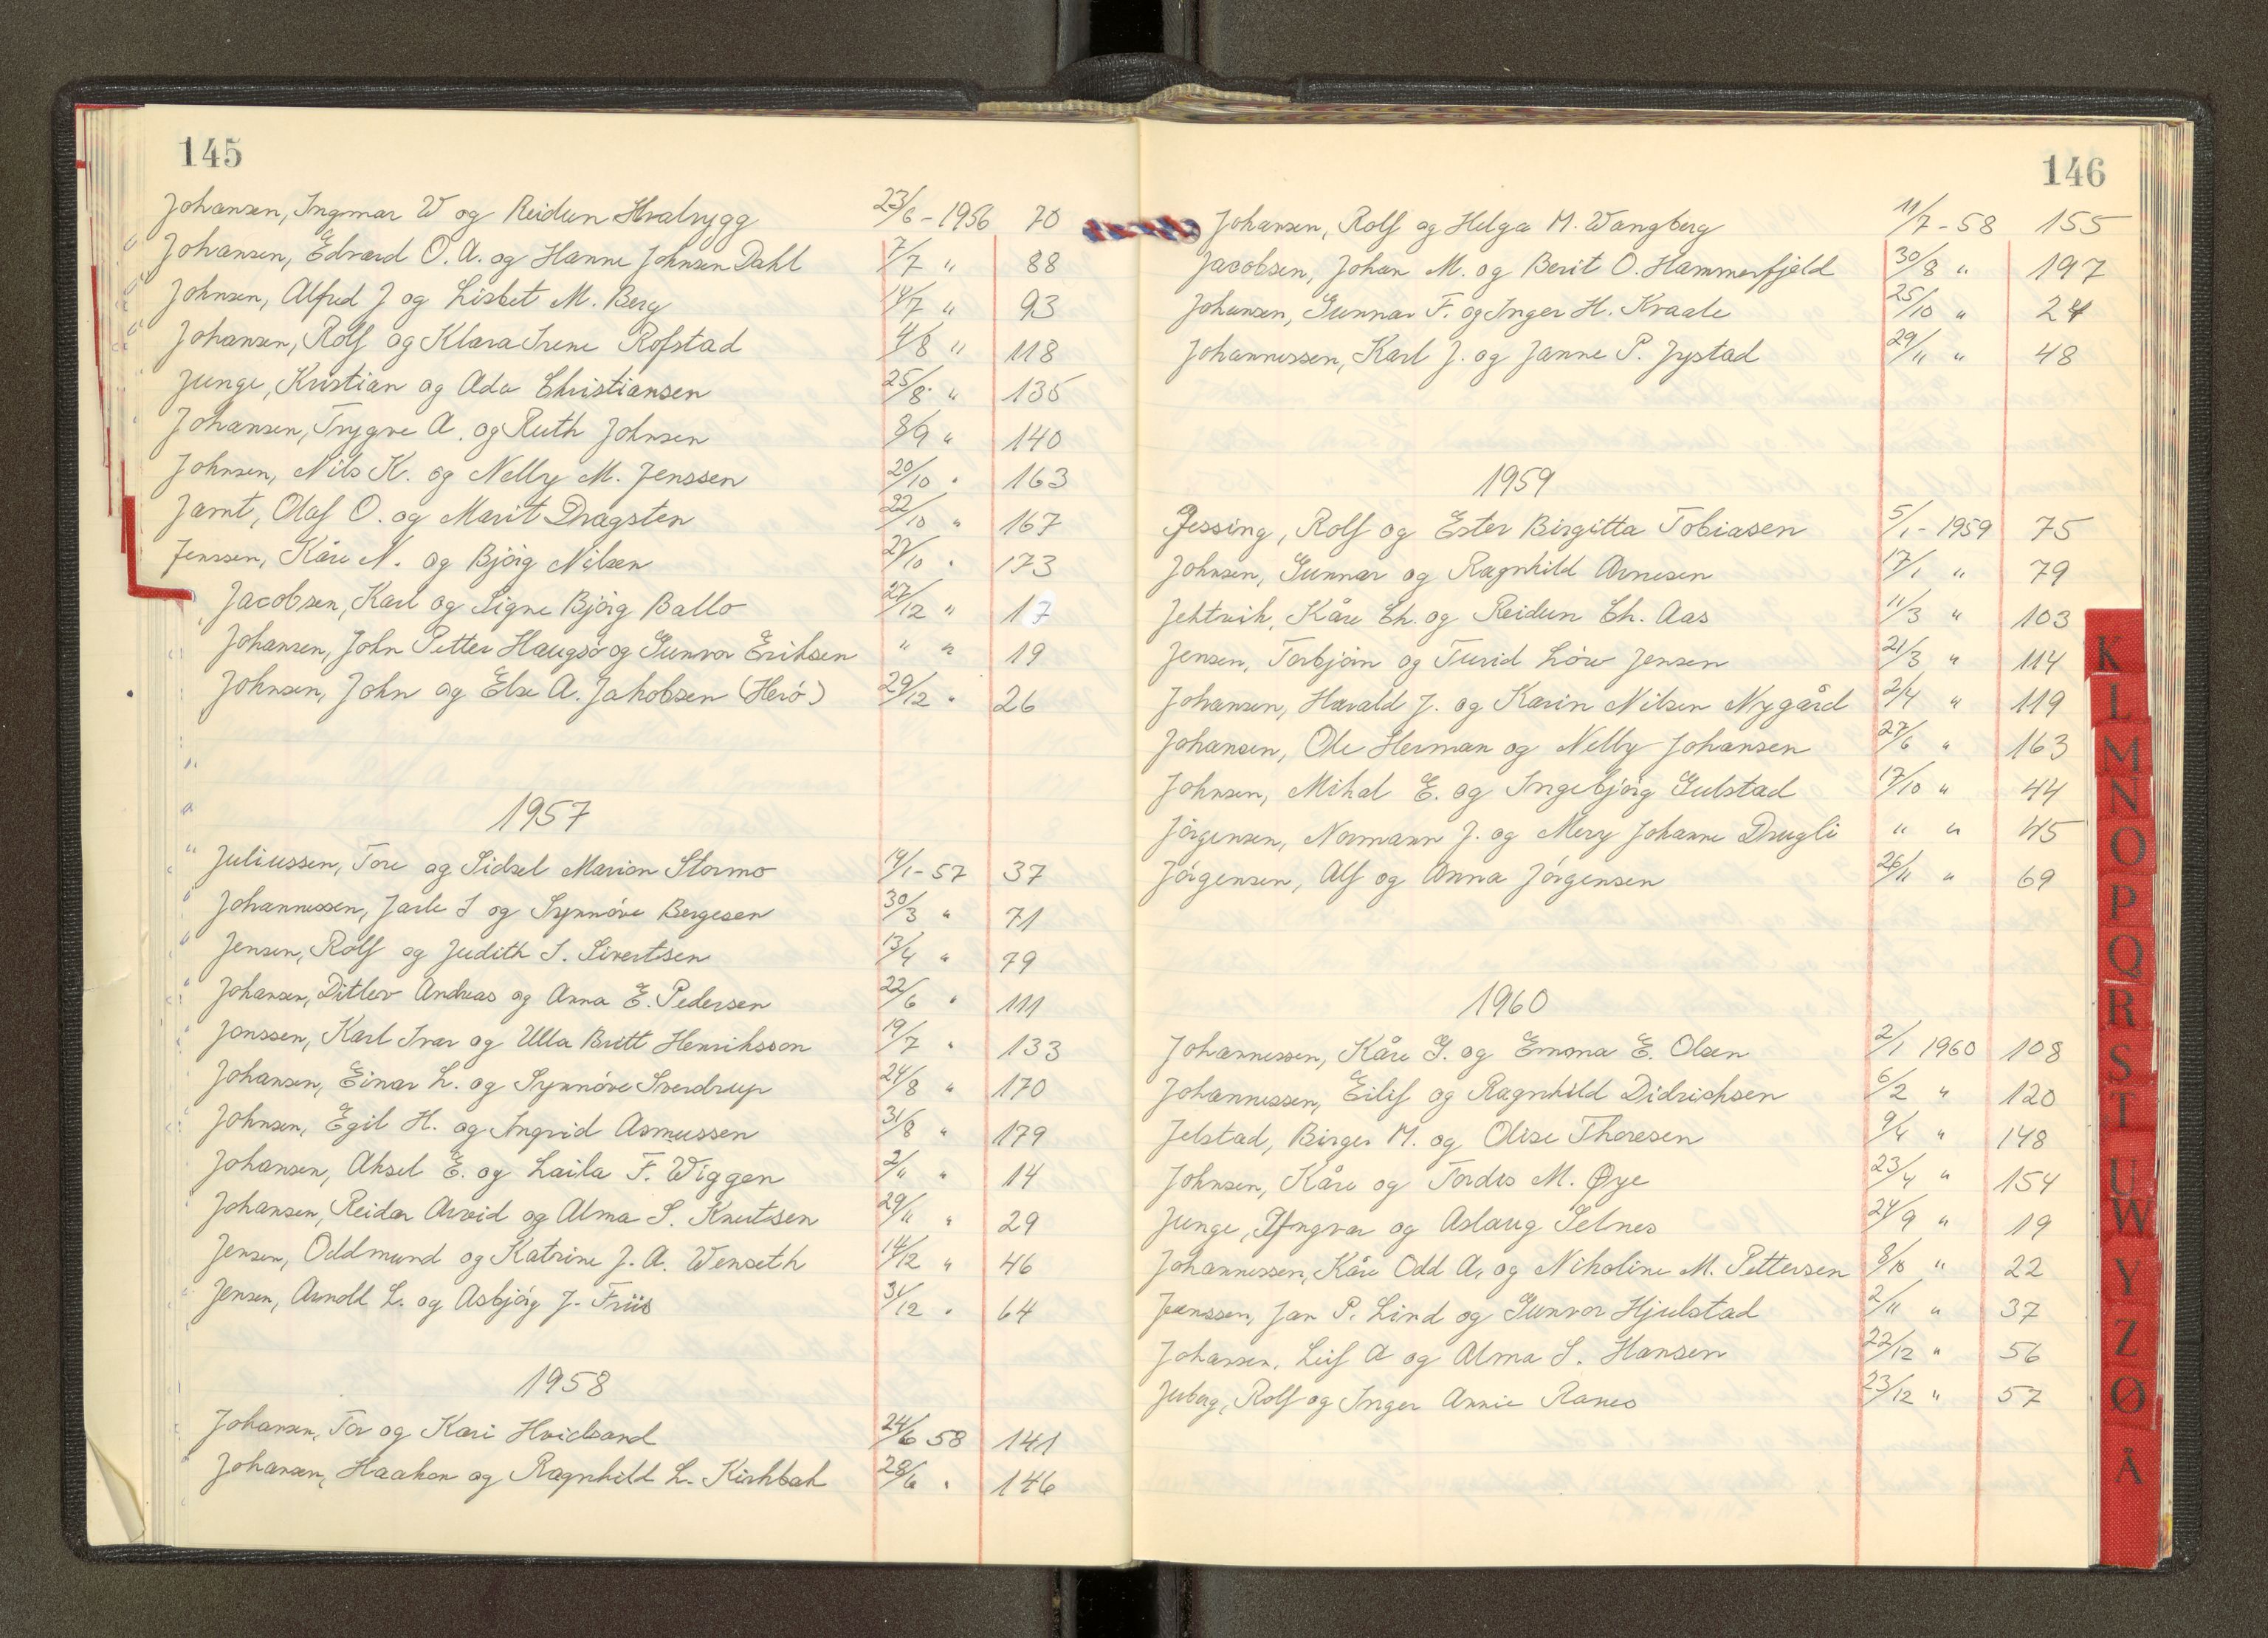 145
Johansen, Ingmar W og Reidun Hvalrygg 23/6 - 1956 70
Johansen, Edvard O. A. og Hanne Johnsen Dahl 7/7 " 88
Johnsen, Alfred J og Lisbet M. Berg 14/7 " 93
Johansen, Rolf og Klara Irene Rofstad 4/8 " 118
Junge, Kristian og Ada Christiansen 25/8 " 135
Johansen, Trygve A. og Ruth Johnsen 8/9 " 140
Johnsen, Nils K. og Nelly M. Jenssen 20/10 " 163
Jamt, Olaf O. og Marit Dragsten 22/10 " 167
Jenssen, Kåre N. og Bjørg Nilsen 27/10 " 173
Jacobsen, Karl og Signe Bjørg Ballo 27/12 " 17
Johansen, John Petter Haugsø og Gunvor Eriksen " " 19
Johnsen, John og Else A. Jakobsen (Herø) 29/12 " 26
1957
Juliussen, Tore og Sidsel Marion Stormo 19/1 - 57 37
Johannessen, Jarle I og Synnøve Bergesen 30/3 " 71
Jensen, Rolf og Judith S. Sivertsen 13/4 " 79
Johansen, Ditlev Andreas og Anna E. Pedersen 22/6 " 111
Jonssen, Karl Ivar og Ulla Britt Henriksson 19/7 " 133
Johansen, Einar L. og Synnøve Sverdrup 24/8 " 170
Johnsen, Egil H. og Ingrid Asmussen 31/8 " 179
Johansen, Aksel E. og Laila F. Wiggen 2/11 " 14
Johansen, Reidar Arvid og Alma S. Knutsen 29/11 " 29
Jensen, Oddmund og Katrine J. A. Wenseth 14/12 " 46
Jensen, Arnold L. og Asbjørg J. Friis 31/12 " 64
1958
Johansen, Tor og Kari Hvidsand 24/6 58 141
Johansen, Haakon og Ragnhild L. Kirkbak 28/6 " 146
146
Johansen, Rolf og Helga M. Wangberg 11/7 - 58 155
Jacobsen, Johan M. og Berit O. Hammerfjeld 30/8 " 197
Johansen, Gunnar F. og Inger H. Kraale 25/10 " 24
Johannessen, Karl J. og Janne P. Jystad 29/11 " 48
1959
Jessing, Rolf og Ester Birgitta Tobiasen 5/1 - 1959 75
Johnsen, Gunnar og Ragnhild Arnesen 17/1 " 79
Jektvik, Kåre Ch. og Reidun Ch. Aas 11/3 " 103
Jensen, Torbjørn og Turid Löw Jensen 21/3 " 114
Johansen, Harald J. og Karin Nilsen Nygård 2/4 " 119
Johansen, Ole Herman og Nelly Johansen 27/6 " 163
Johnsen, Mikal E. og Ingebjørg Gulstad 17/10 " 44
Jørgensen, Normann J. og Mery Johanne Drugli " " 45
Jørgensen, Alf og Anna Jørgensen 26/11 " 69
1960
Johannessen, Kåre G. og Emma E. Olsen 2/1 1960 108
Johannessen, Eilif og Ragnhild Didriksen 6/2 " 120
Jelstad, Birger M. og Olise Thoresen 9/4 " 148
Johnsen, Kåre og Tordis M. Øye 23/4 " 154
Junge, Yngvar og Aslaug Selnes 24/9 " 19
Johannessen, Kåre Odd A. og Nikoline M. Pettersen 8/10 " 22
Janssen, Jan P. Lind og Gunvor Hjulstad 2/11 " 37
Johansen, Leif A og Alma S. Hansen 22/12 " 56
Juberg, Rolf og Inger Annie Ranes 23/12 " 57
K
L
M
N
O
P
Q
R
S
T
U
W
Y
Z
Ø
Å